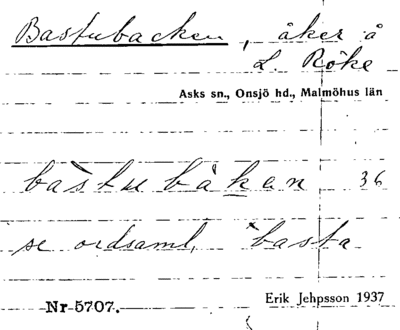 Bastubacken, åker å
L. Röke
Asks sn., Onsjö hd., Malmöhus län
bàstubàkan 36
se ordsaml. basta
Nr 5707.
Erik Jehpsson 1937